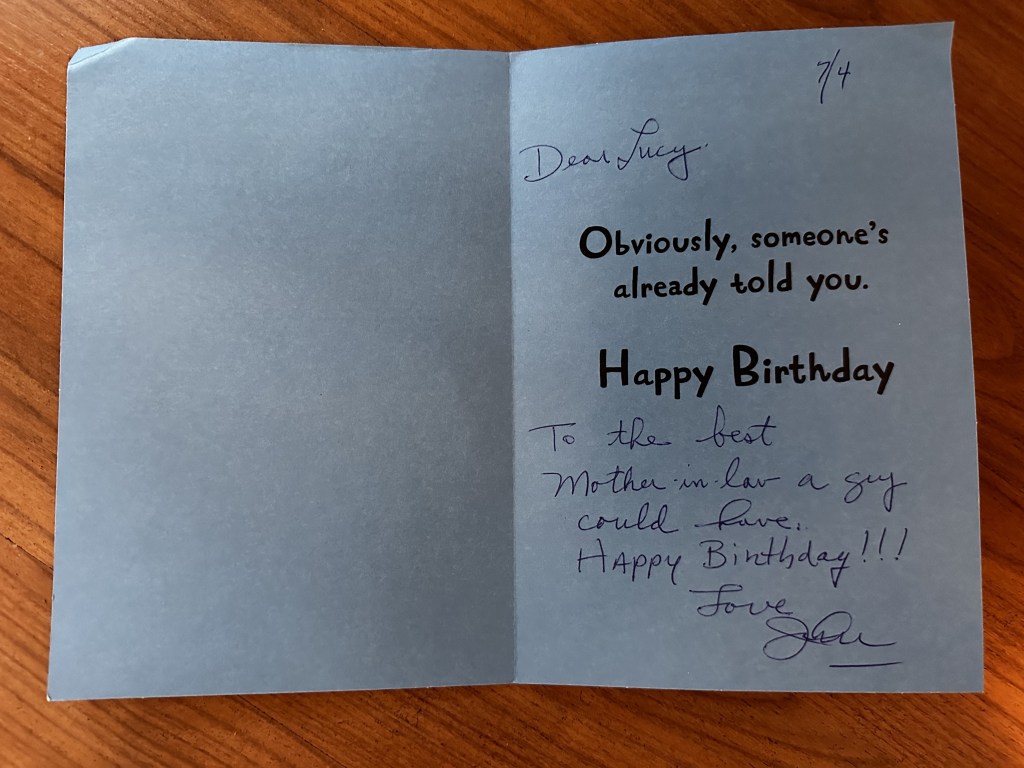 7/4
Dear Lucy.
Obviously, someone's
already told you.
Happy Birthday
To the best
Mother-in-law a guy
could have.
HAPPY Birthday!!!
Love